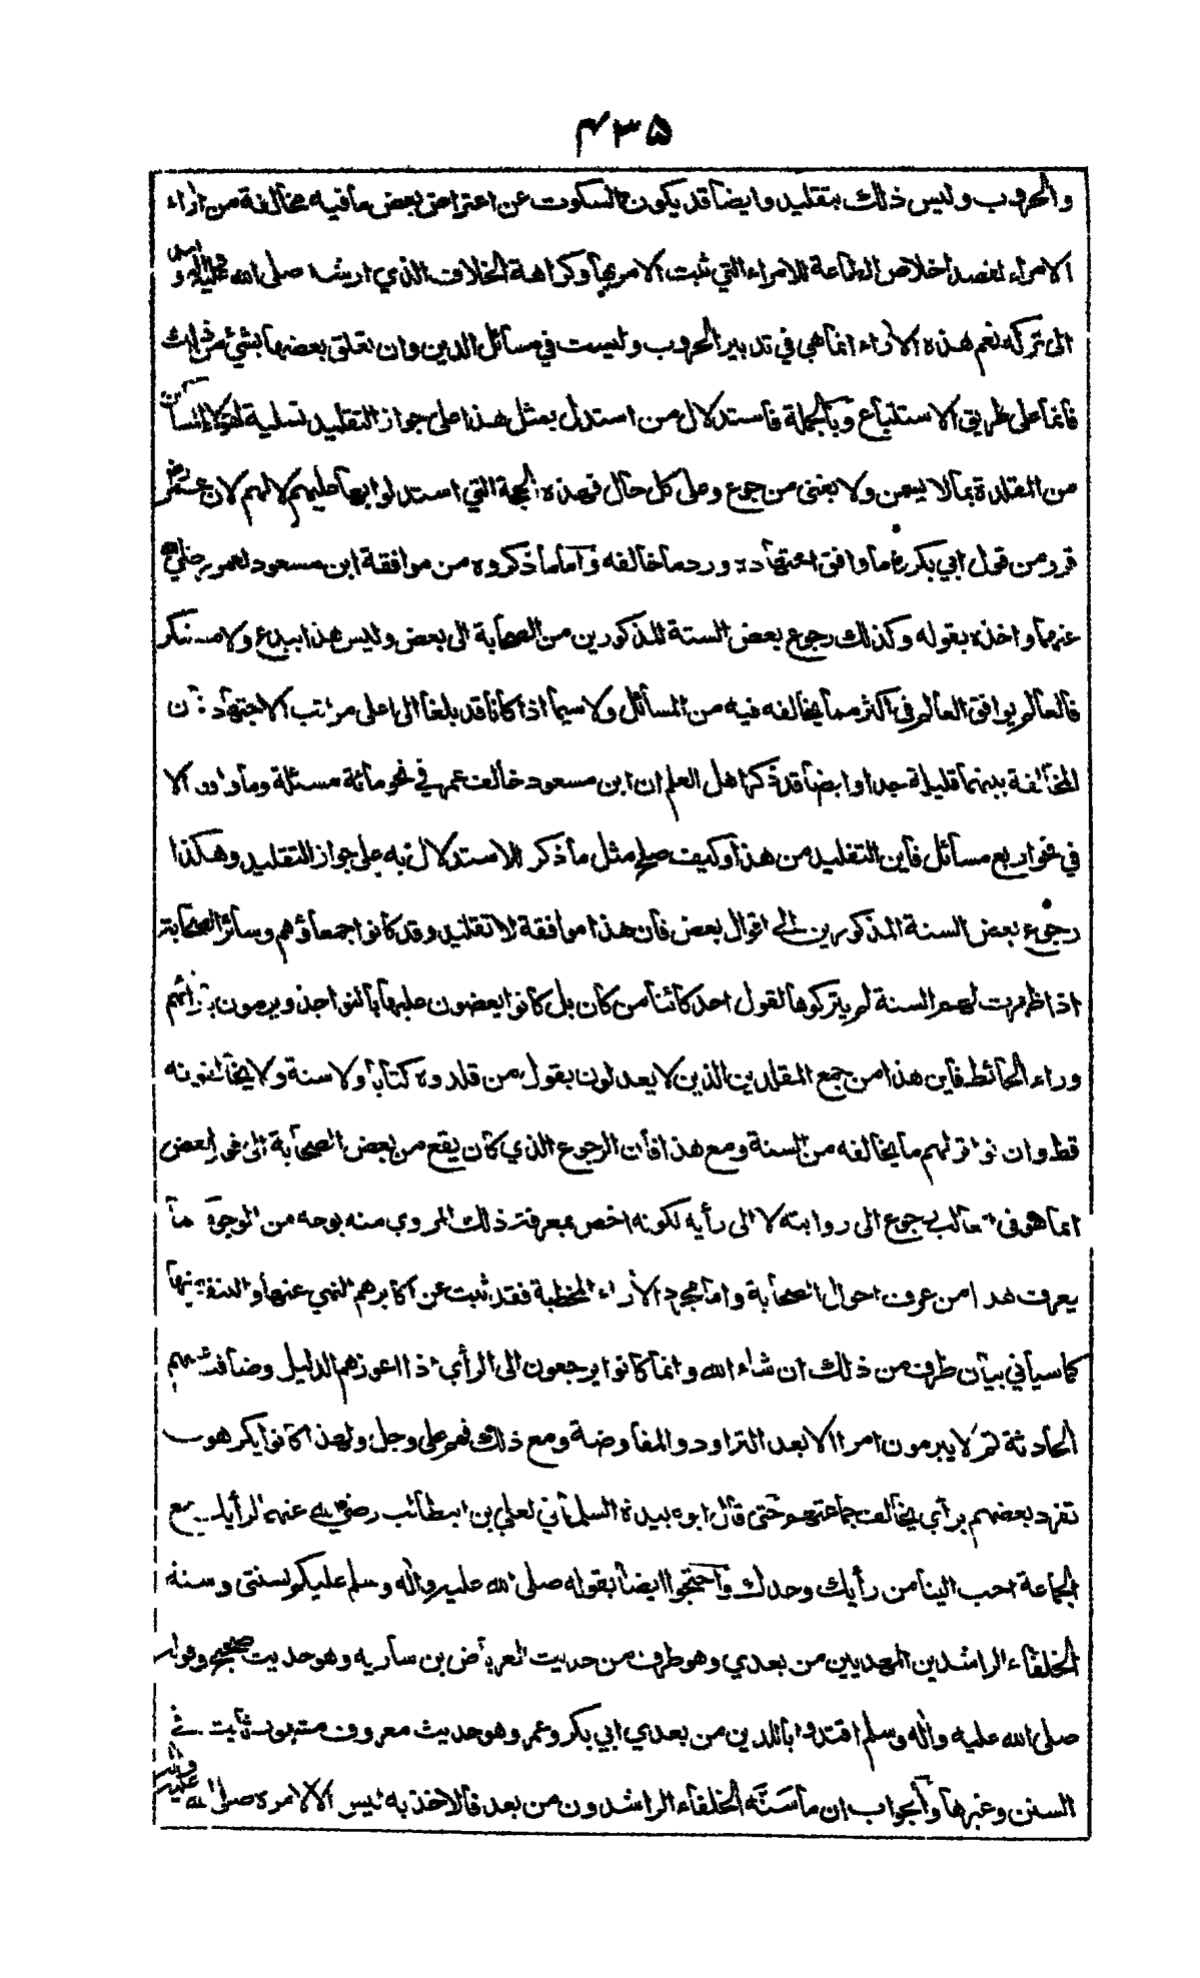 ۴۳۵
والحروب وليس ذلك بتقليد وايضا قد يكون السكوت عن اعتراض بعض ما فيه مخالفة من اراء
الامراء لقصد اخلاص الطاعة للامراء التي ثبت الامر بها وكراهة الخلاف الذي ارشد صلى الله عليه واله وسلم
الى تركه نعم هذه الاراء انما هي في تدبير الحروب وليست في مسائل الدين وان تعلق بعضها بشئ من ذلك
فانما على طريق الاستتباع وبالجملة فاستدلال من استدل بمثل هذا على جواز التقليد تسلية لهؤلاء المساكين
من المقلدة بما لا يسمن ولا يغني من جوع وعلى كل حال فهذه الحجة التي استدلوا بها عليهم لا لهم لان عمر رض
قرر من قول ابي بكر رض ما وافق اجتهاده ورد ما خالفه واما ما ذكروه من موافقة ابن مسعود لعمر رضي الله
عنهما واخذه بقوله وكذلك رجوع بعض الستة المذكورين من الصحابة الى بعض وليس هذا ببدع ولا مستنكر
فالعالم يوافق العالم في اكثر مما يخالفه فيه من المسائل ولا سيما اذا كانا قد بلغا الى اعلى مراتب الاجتهاد فان
المخالفة بينهما قليلة جدا وايضا قد ذكر اهل العلم ان ابن مسعود خالف عمر في نحو مائة مسئلة وما وافقه الا
في نحو اربع مسائل فاين التقليد من هذا وكيف صلح مثل ما ذكر للاستدلال به على جواز التقليد وهكذا
رجوع بعض الستة المذكورين الى اقوال بعض فان هذا موافقة لا تقليد وقد كانوا جميعا هم وسائر الصحابة
اذا ظهرت لهم السنة لم يتركوها لقول احد كائنا من كان بل كانوا يعضون عليها بالنواجذ ويرمون بارائهم
وراء الحائط فاين هذا من جمع المقلدين الذين لا يعدلون بقول من قلدوه كتابا ولا سنة ولا يخالفونه
قط وان تواتر لهم ما يخالفه من السنة ومع هذا فان الرجوع الذي كان يقع من بعض الصحابة الى نحو بعض
انما هو في الغالب رجوع الى روايته لا الى رأيه لكونه اخص بمعرفة ذلك المروي منه بوجه من الوجوه كما
يعرف هذا من عرف احوال الصحابة واما مجرد الأراء المحظية فقد ثبت عن اكابرهم النهي عنها والتنفير منها
كما سيأتي بيان طرف من ذلك ان شاء الله وانما كانوا يرجعون الى الرأي اذا اعوزهم الدليل وضاقت عليهم
الحادثة ثم لا يبرمون امرا الا بعد التراود والمفاوضة ومع ذلك فهم على وجل ولهذا كانوا يكرهون
تفرد بعضهم برأي يخالف جماعتهم حتى قال ابو عبيدة السلماني لعلي بن ابيطالب رضي الله عنهم لرأيك مع
الجماعة احب الينا من رأيك وحدك واحتجوا ايضا بقوله صلى الله عليه واله وسلم عليكم بسنتي وسنة
الخلفاء الراشدين المهديين من بعدي وهو طرف من حديث العرباض بن سارية وهو حديث صحيح وقوله
صلى الله عليه واله وسلم اقتدوا بالذين من بعدي ابي بكر وعمر وهو حديث معروف مشهور ثابت في
السنن وغيرها والجواب ان ما سنه الخلفاء الراشدون من بعد فالاخذ به ليس الا لامره صلى الله عليه واله